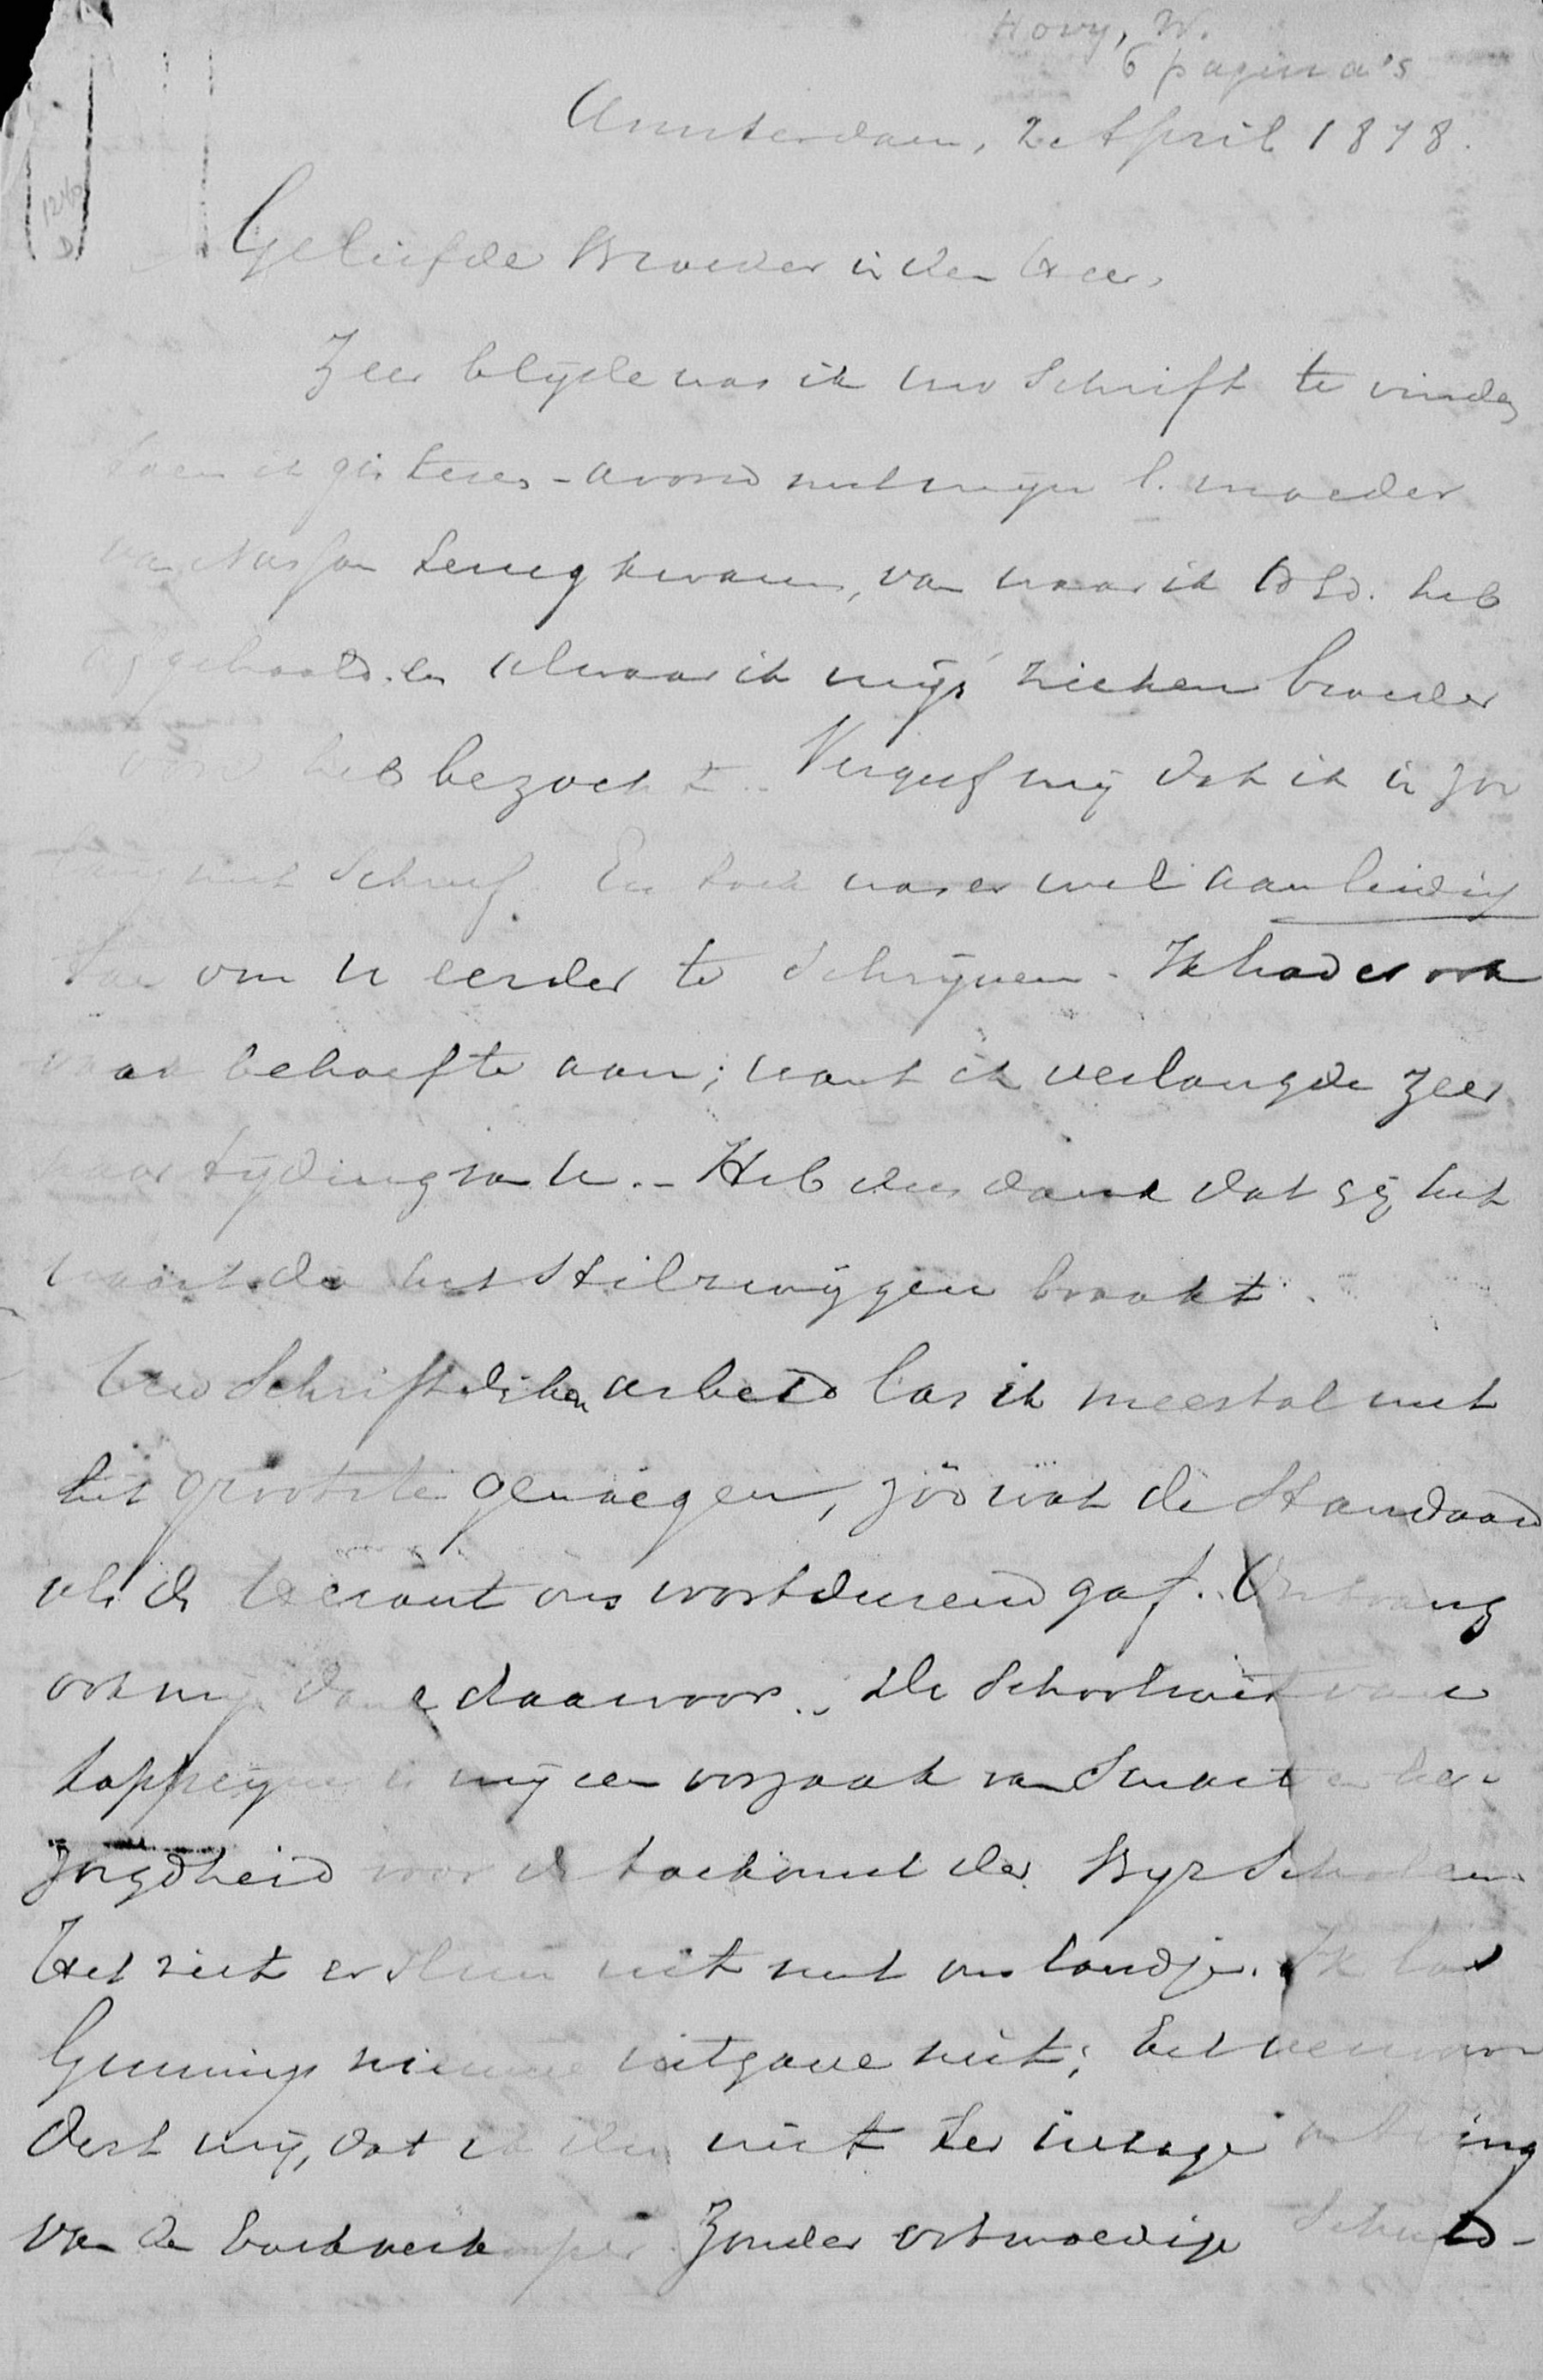 Hovy, W.
6 pagina's
Amsterdam, 2 April 1878.
1240
Geliefde Broeder in den Heer,
Zeer blijde was ik uw schrift te vinden
toen ik gisteren-avond met mijn l. moeder
van Nassau terug kwam, van waar ik HEd. heb
afgehaald en alwaar ik mijn zieken broeder
heb bezocht. Vergeef mij dat ik in zoo
lang niet schreef. En toch was er wel aanleiding
toe om u eerder te schrijven. Ik had er ook
vaak behoefte aan; want ik verlangde zeer
naar tijding van u. Heb dus dank dat gij het
waart die het stilzwijgen braakt.
Uw schriftelijken arbeid las ik meestal met
het grootste genoegen, zoo wat de Standaard
als de Heraut ons voortdurend gaf. Ontvang
ook mijn dank daarvoor. De Schoolwet van
Kappeyne is mij een oorzaak van smart en be-
zorgdheid voor de toekomst der Byz Scholen.
Het ziet er slim uit met ons landje. Ik las
Gunnings nieuwe uitgave niet; het verwon
dert mij, dat ik die niet ter inzage ontving
van de boekverkooper. Zonder ootmoedige Schuld-